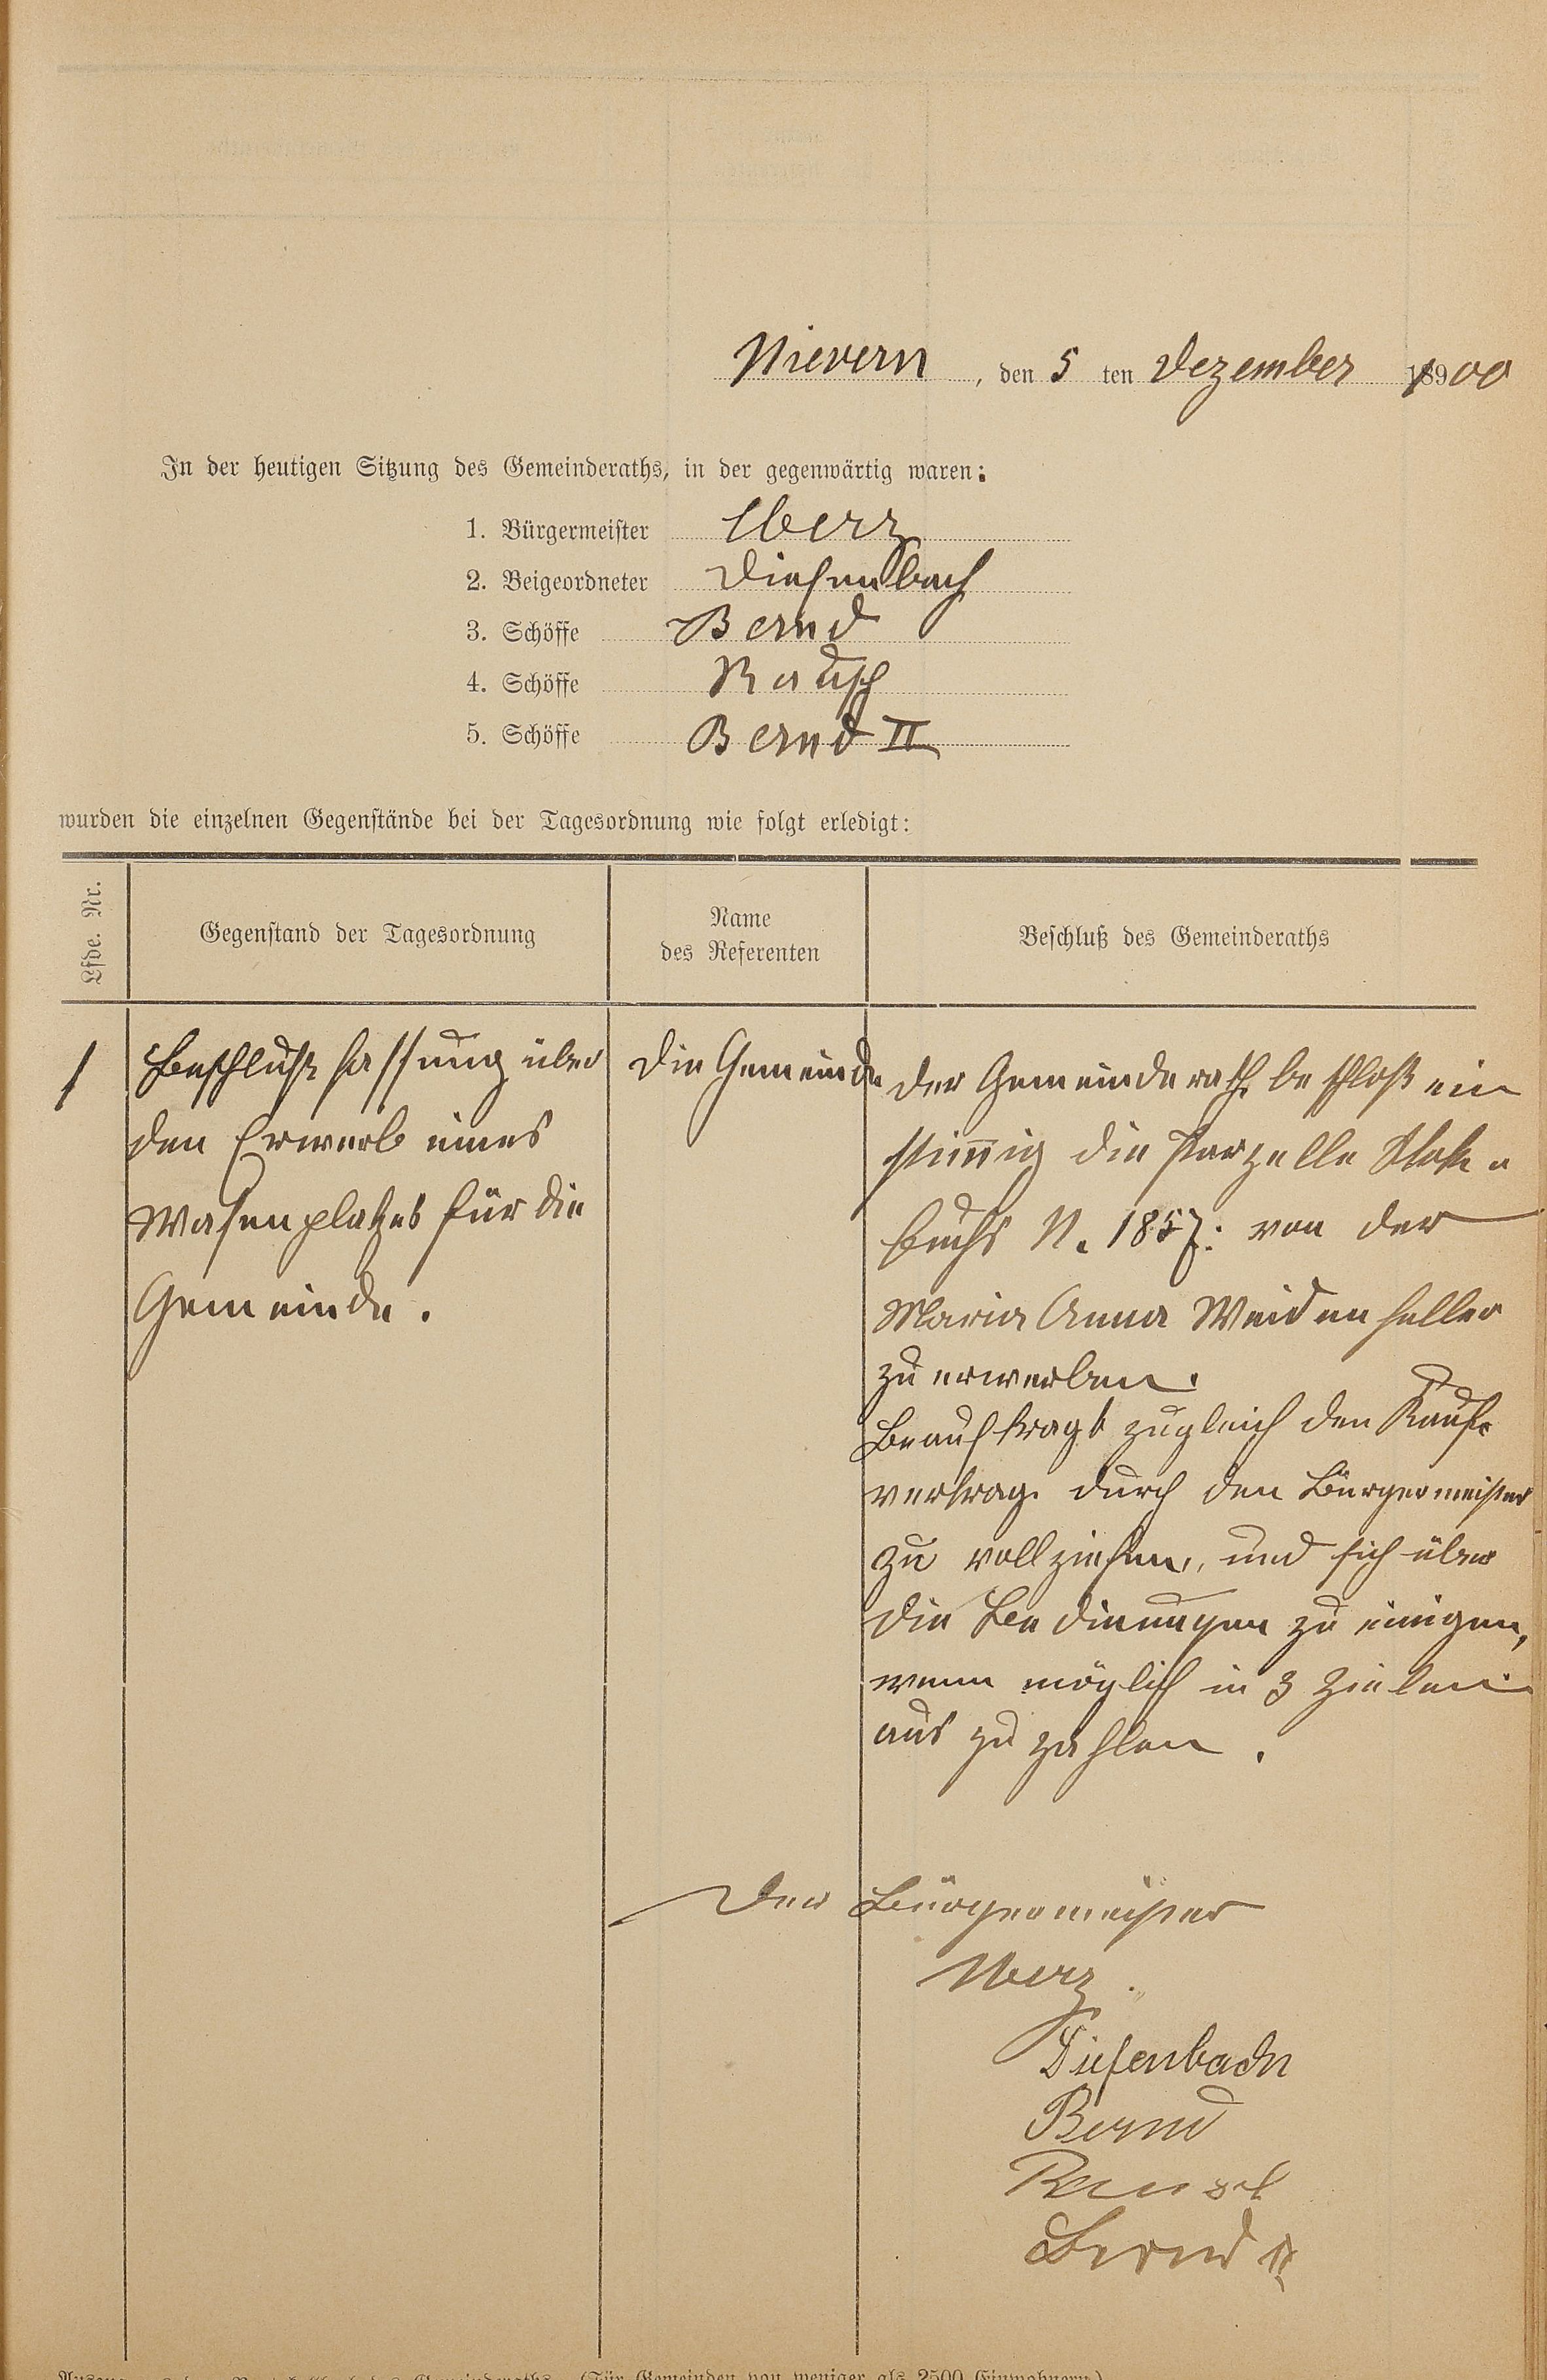 Nievern, den 5 ten Dezember 1900
In der heutigen Sitzung des Gemeinderaths, in der gegenwärtig waren:
1. Bürgermeister
2. Beigeordneter Diefenbach
3. Schöffe Bernd
4. Schöffe Rausch
5. Schöffe Bernd II
wurden die einzelnen Gegenstände bei der Tagesordnung wie folgt erledigt:
Lfde. Nr.
Gegenstand der Tagesordnung
Name
des Referenten
Beschluß des Gemeinderaths
1
Beschluß fassung über
den Erwerb eines
Wasenplatzes für die
Gemeinde.
Die Gemeinde
Der Gemeinderath beschloß ein
stimig die Parzelle Stok
buchs N. 1857: von der
Maria Anna Weidenheller
zu erwerben.
Beauftragt zugleich den Kauf
vertrag durch den Bürgermeister
zu vollziehen, und sich über
die Bedinungen zu einigen,
wenn möglich in 3 Zielen
aus zu zahlen.
Der Bürgermeister
Diefenbach
Bernd
Rausch
Bernd II
(Für Gemeinden von weniger als 2500 Einwohnern)